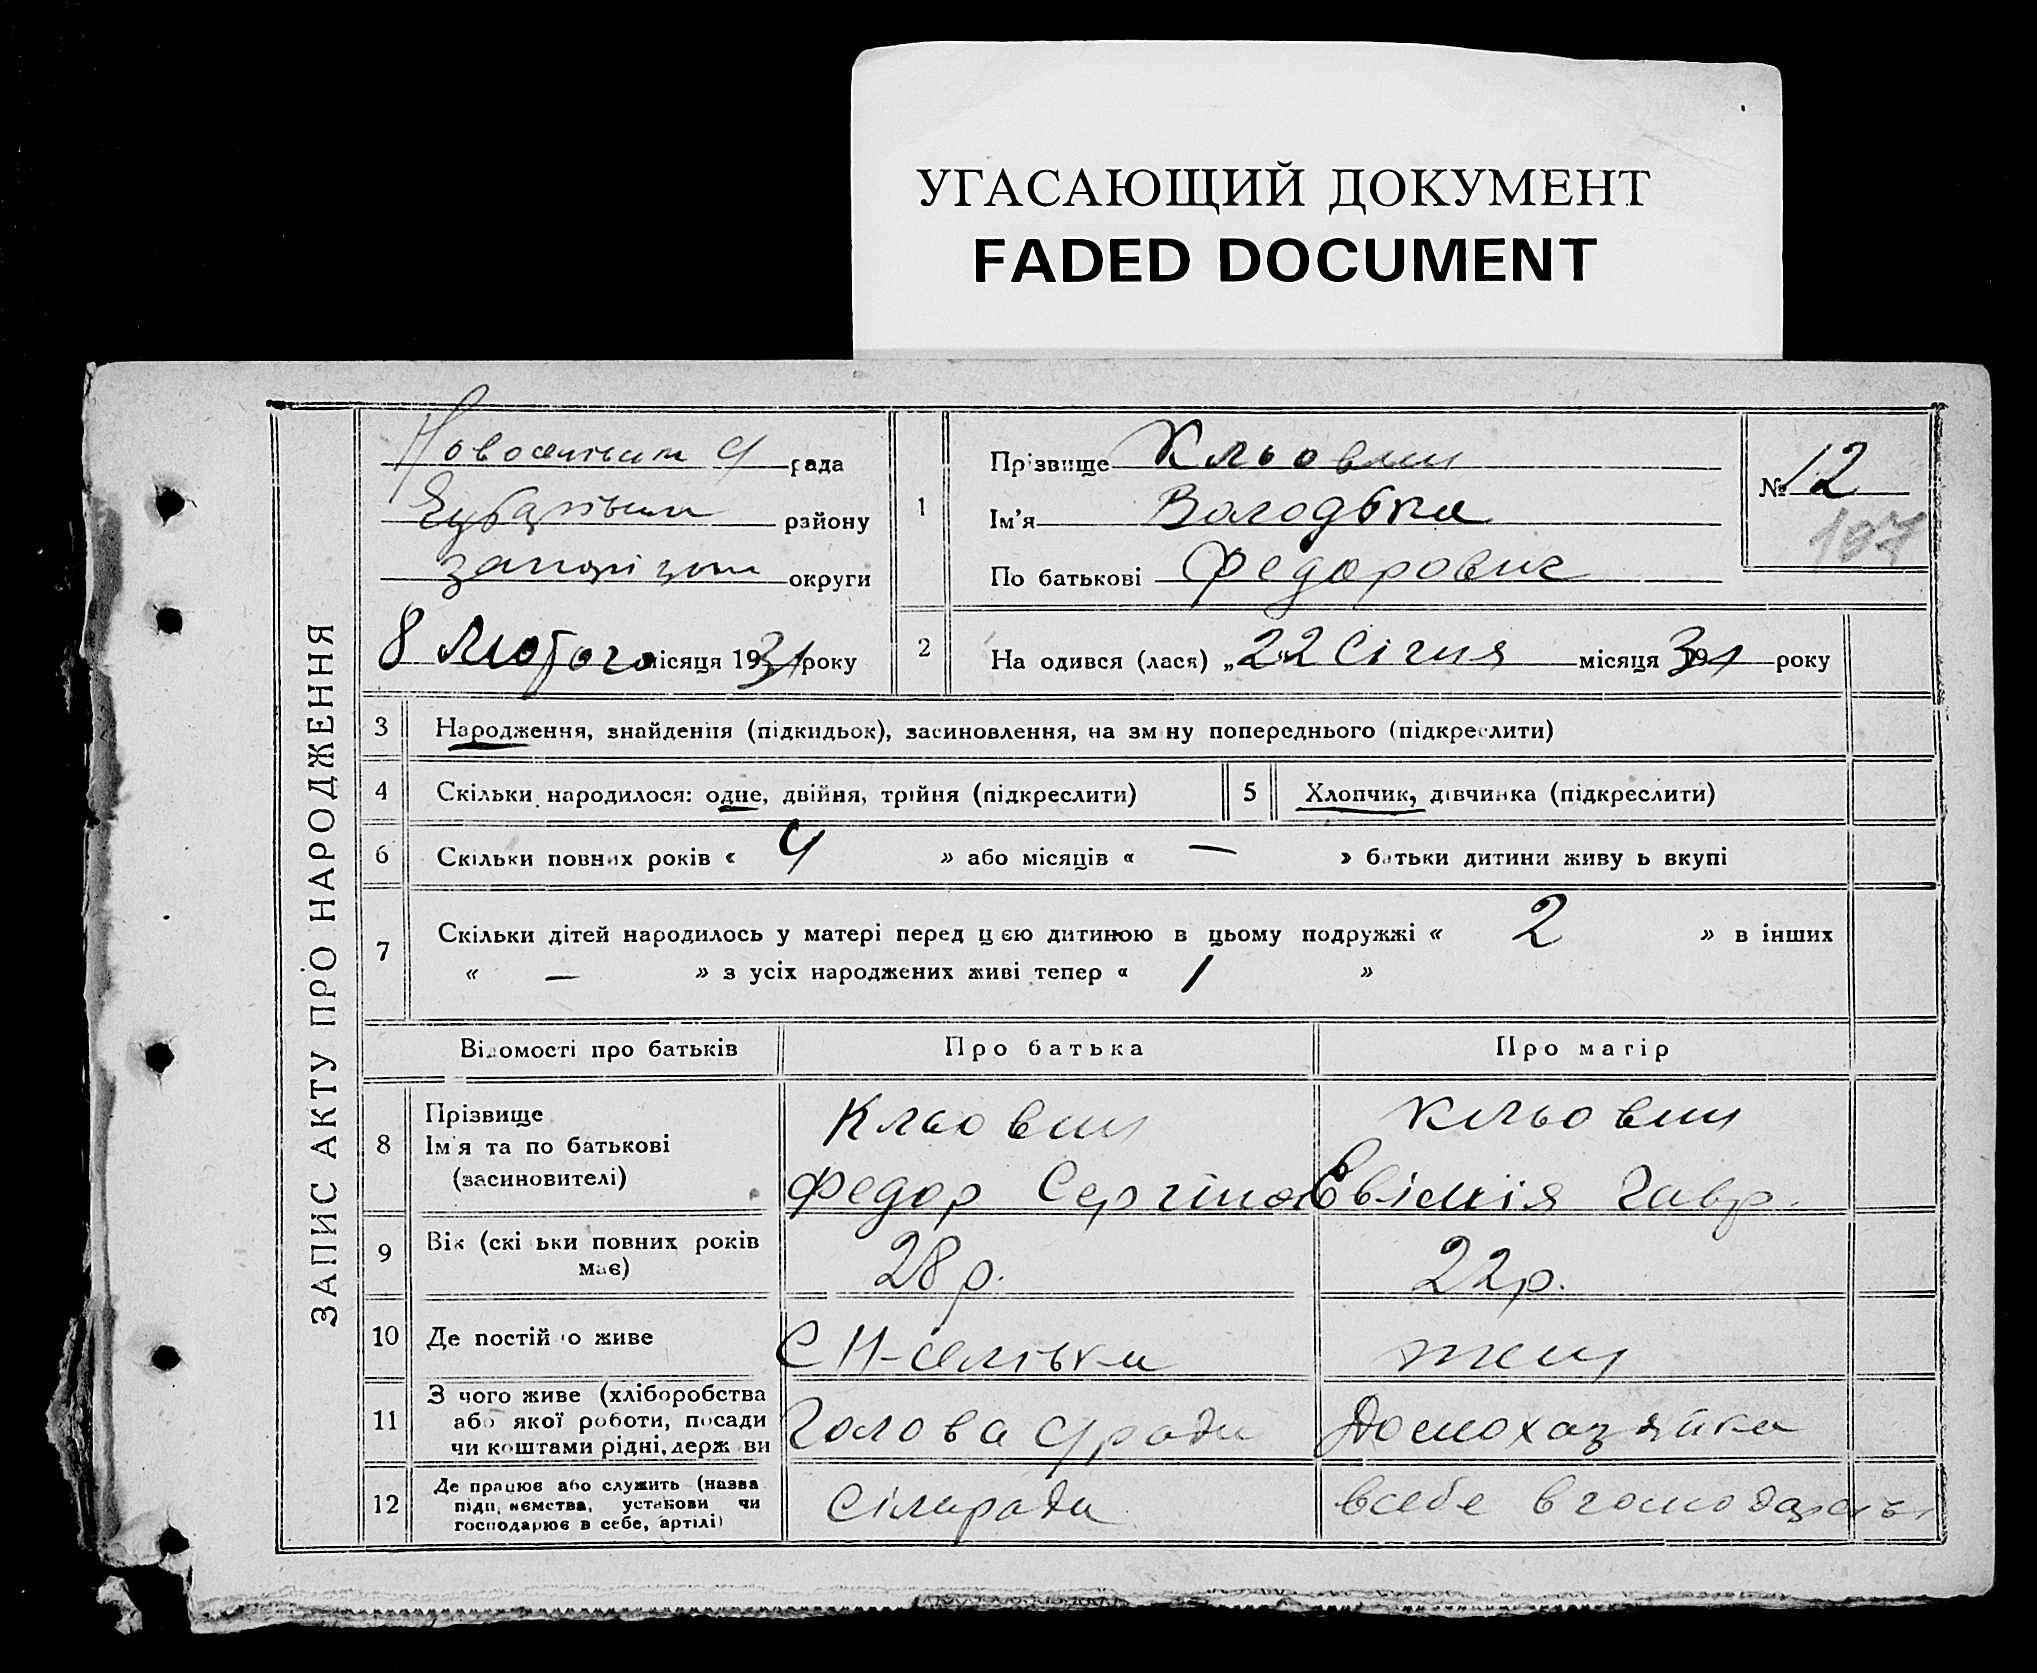 УГАСАЮЩИЙ ДОКУМЕНТ
FADED DOCUMENT
ЗАПИС АКТУ ПРО НАРОДЖЕННЯ
рада
району
округи
8 Лютого місяця 1931 року
1
Прізвище Кльовии
Ім'я
По батькові Федорович
№ 12
107
2
На одився (лася) „22 Січня місяця 31 року
3 Народження, знайдення (підкидьок), засиновлення, на зм ну попереднього (підкреслити)
4 Скільки народилося: одне, двійня, трійня (підкреслити)
5 Хлопчик, дівчинка (підкреслити)
6 Скільки повних років « 4 » або місяців « — » батьки дитини живу ь вкупі
7 Скільки дітей народилось у матері перед цією дитиною в цьому подружжі « 2 » в інших
« — » з усіх народжених живі тепер « 1 »
Відомості про батьків
Про батька
Про матір
8
Прізвище
Ім'я та по батькові
(засиновителі)
Кльовии
Федор
Кльовии
Євімія Гавр.
9 Вік (скі ьки повних років
має)
28 р.
22 р.
10 Де постій о живе
С Н-селівка
теж
11
З чого живе (хліборобства
або якої роботи, посади
чи коштами рідні, держ ви
Голова с/ради
Домохазяйка
12
Де працює або служить (назва
підп, ємства, установи чи
господарює в себе, артілі)
Сільради
всебе в господарстві